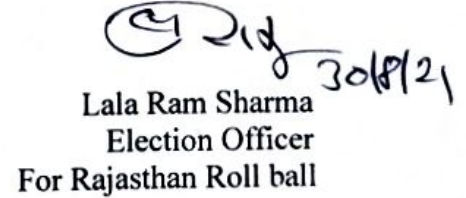 30/8/21
Lala Ram Sharma
Election Officer
For Rajasthan Roll ball